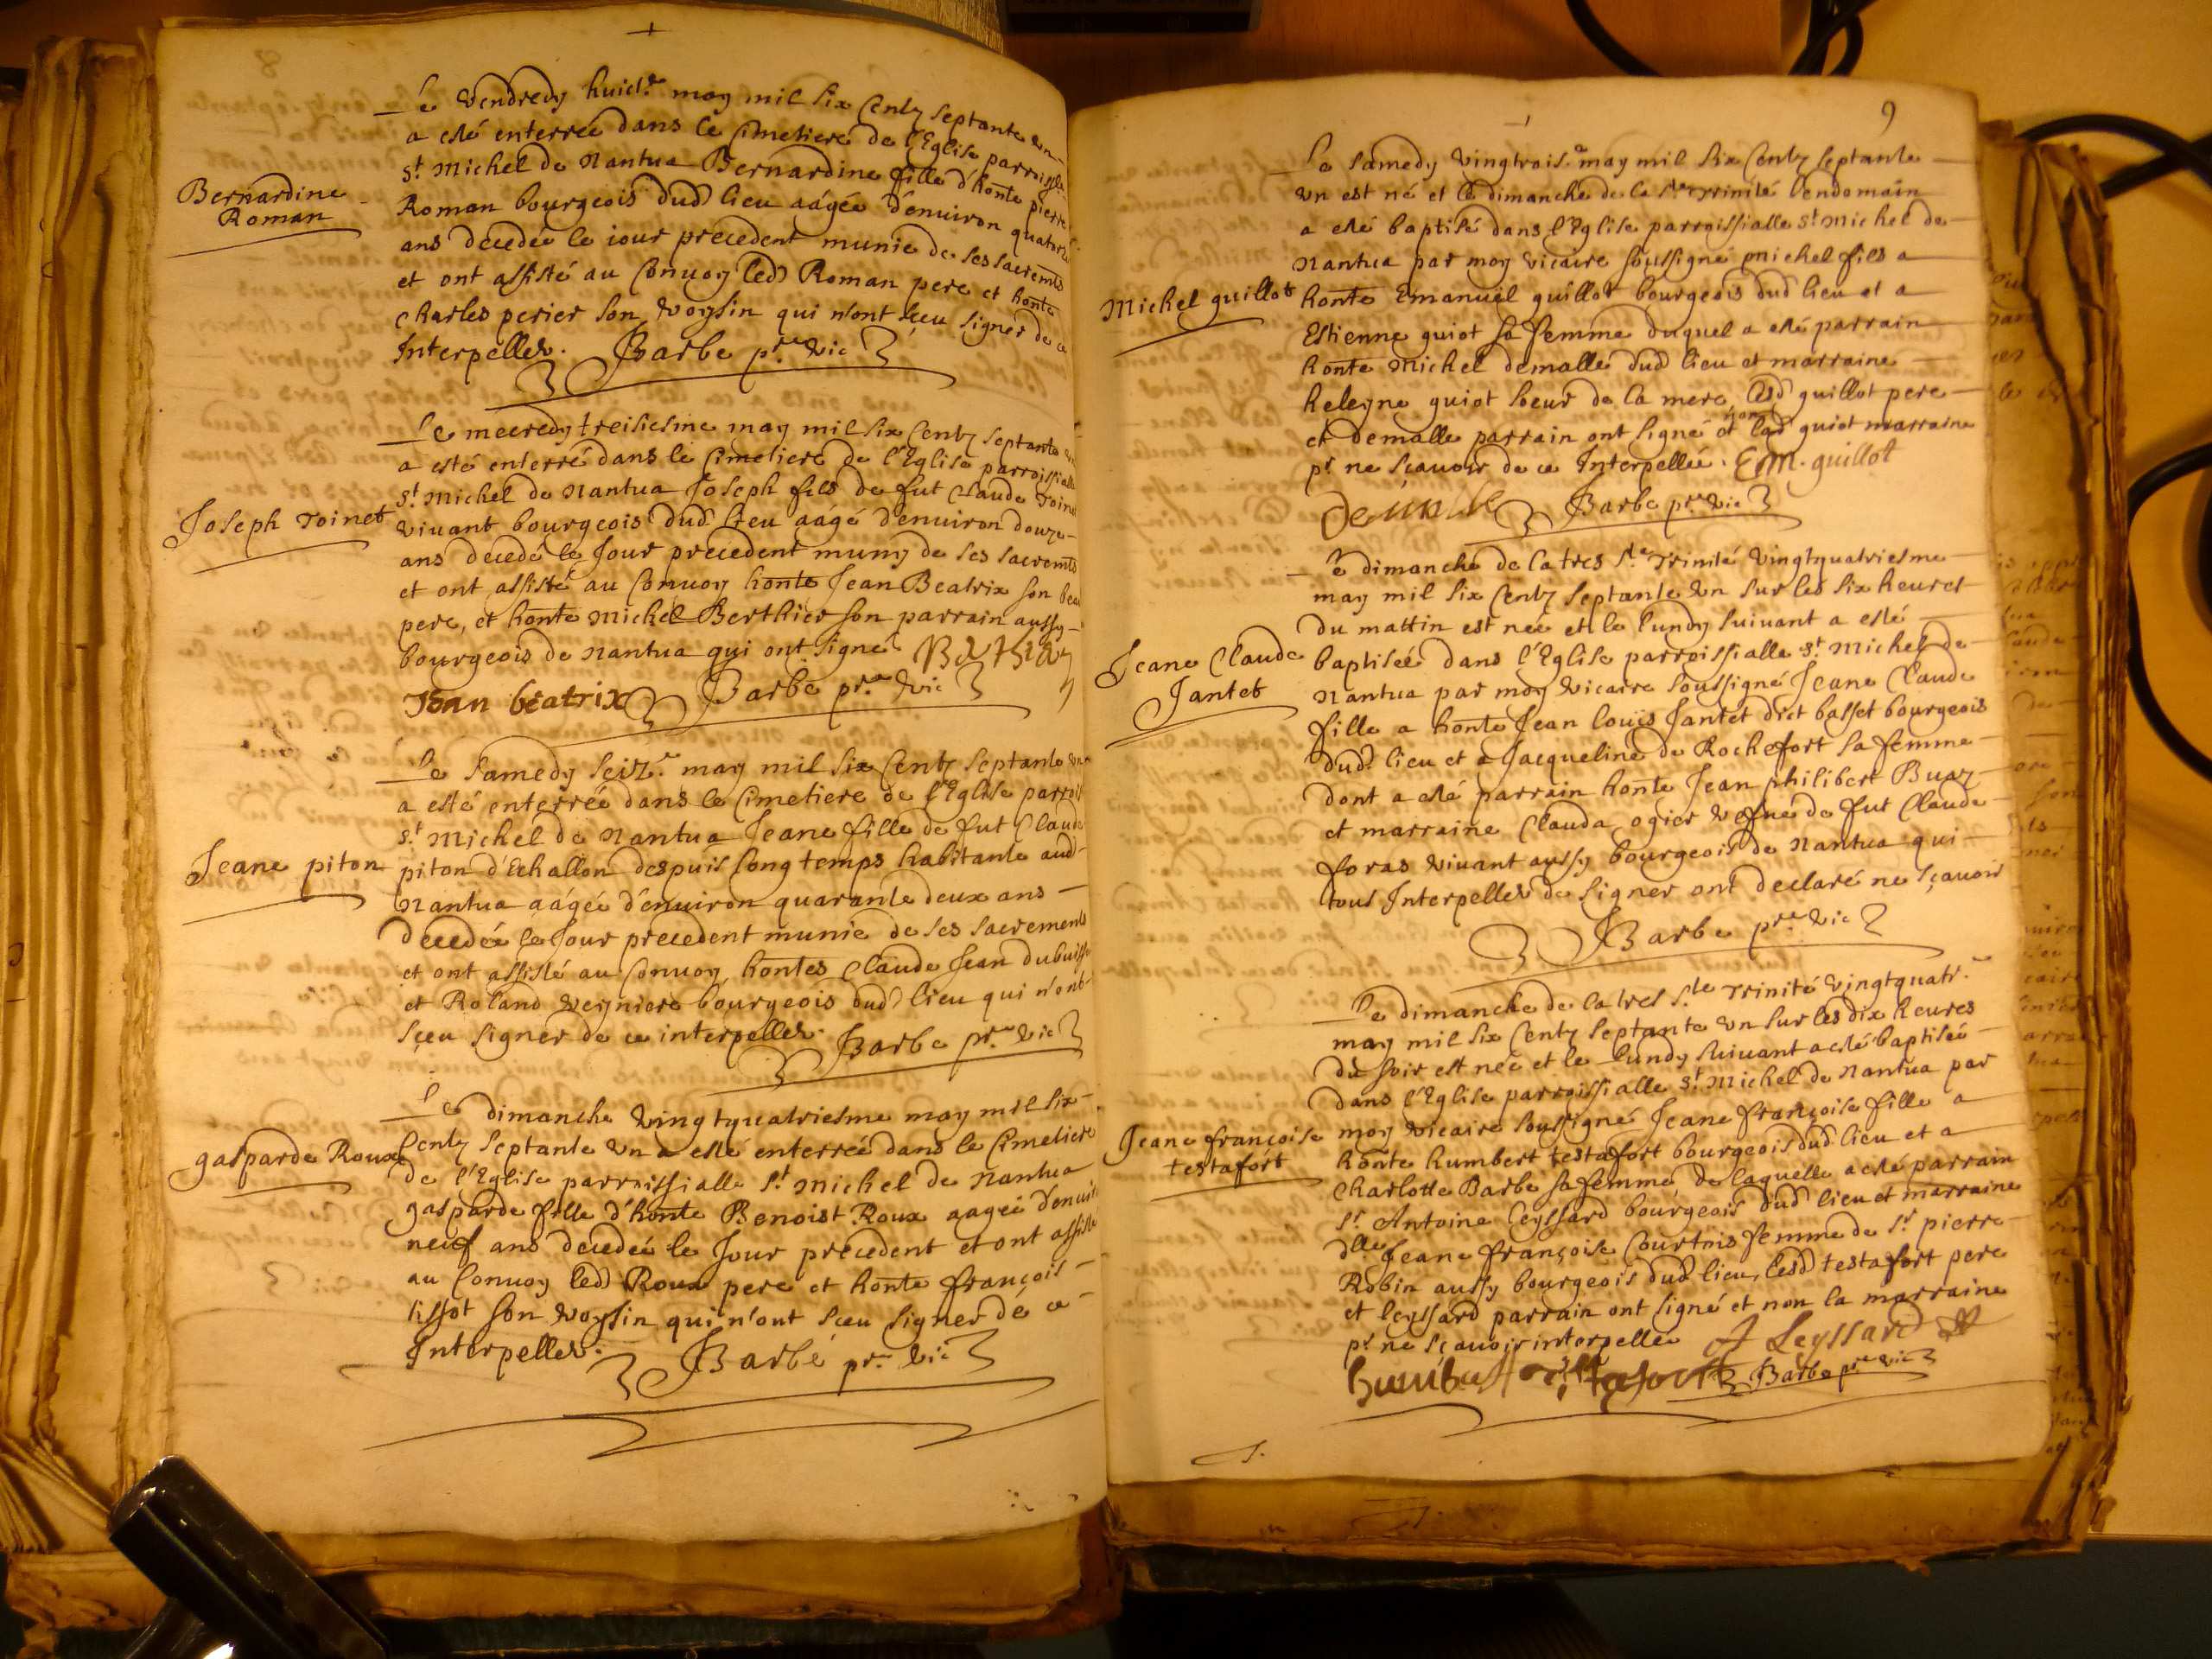 Le Vendredy huict.e may mil six Centz septante un
a esté enterrée dans le Cimetiere de l'Eglise parroiss.le
St Michel de Nantua Bernardine fille d'honte pierre
Bernardine
Roman
Roman bourgeois dud lieu aagée d'enuiron quatorze
ans decedée le iour precedent munie de ses sacremts
et ont assisté au Conuoy led Roman pere et honte
Charles perier son voysin qui n'ont sçeu signer de ce
Interpelles. Barbe pr.e vic
Le mecredy treisiesme may mil six Centz septante un
a esté enterré dans le Cimetiere de l'Eglise parroissialle
St Michel de Nantua Joseph fils de fut Claude Toinet
Joseph Toinet
viuant bourgeois dud lieu aâgé d'enuiron douze
ans decedé le Jour precedent muny de ses sacremts
et ont assisté au Conuoy honte Jean Beatrix son beau
pere, et honte Michel Berthier son parrain aussy
bourgeois de Nantua qui ont signé
Jean beatrix Barbe pr.e vic
Le samedy seiz.e may mil six Centz septante un
a esté enterrée dans le Cimetiere de l'Eglise parroiss
St Michel de Nantua Jeane fille de fut Claude
Jeane piton
piton d'Echallon despuis long temps habitante aud
Nantua aâgée d'enuiron quarante deux ans
decedée le Jour precedent munie de ses sacrements
et ont assisté au Conuoy hontes Claude Jean dubuisson
et Roland Vegniere bourgeois dud lieu qui n'ont
sçeu signer de ce interpelles. Barbe pr.e vic
Le dimanche vingtquatriesme may mil six
gasparde Roux
Centz septante un a esté enterrée dans le Cimetiere
de l'Eglise parroissialle St Michel de Nantua
gasparde fille d'honte Benoist Roux aagée d'enuiron
neuf ans decedée le Jour precedent et ont assisté
au Conuoy led Roux pere et honte françois
tissot son voysin qui n'ont sceu signer dé ce
Interpelles. Barbe pr.e vic
9
Le samedy vingtrois.e may mil six Centz septante
un est né et le dimanche de la S.te Trinité lendemain
a esté baptisé dans l'Eglise parroissialle St Michel de
Nantua par moy vicaire soussigné Michel fils a
Michel guillot
honte Emanuel guillot bourgeois dud lieu et a
Estienne guiot sa femme duquel a esté parrain
honte Michel demalle dud lieu et marraine
heleyne guiot soeur de la mere, lesd guillot pere
et demalle parrain ont signé et non lad guiot marraine
pr ne sçauoir de ce Interpellée. Em. guillot
Barbe pr.e vic
Le dimanche de la tres S.te Trinité vingtquatriesme
may mil six Centz septante un sur les six heures
du mattin est née et le lundy suiuant a esté
Jeane Claude
Jantet
baptisée dans l'Eglise parroissialle St Michel de
Nantua par moy vicaire soussigné Jeane Claude
fille a honte Jean louis Jantet dict basset bourgeois
dud lieu et a Jacqueline de Rochefort sa femme
dont a esté parrain honte Jean philibert Buaz
et marraine Clauda ogier vefue de fut Claude
foras viuant aussy bourgeois de Nantua qui
tous Interpelles de signer ont declaré ne sçauoir
Barbe pr.e vic
Le dimanche de la tres S.te Trinité vingtquatr.e
may mil six Centz septante un sur les dix heures
du soir est née et le lundy suiuant a esté baptisée
dans l'Eglise parroissialle St Michel de Nantua par
Jeane françoise
testafort
moy vicaire soussigné Jeane françoise fille a
honte humbert testafort bourgeois dud lieu et a
Charlotte Barbe sa femme, de laquelle a esté parrain
Sr Antoine leyssard bourgeois dud lieu et marraine
dlle Jeane françoise Courtois femme de Sr pierre
Robin aussy bourgeois dud lieu, lesd testafort pere
et leyssard parrain ont signé et non la marraine
pr ne sçauoir interpellée A Leyssard
humbert testafort Barbe pr.e vic